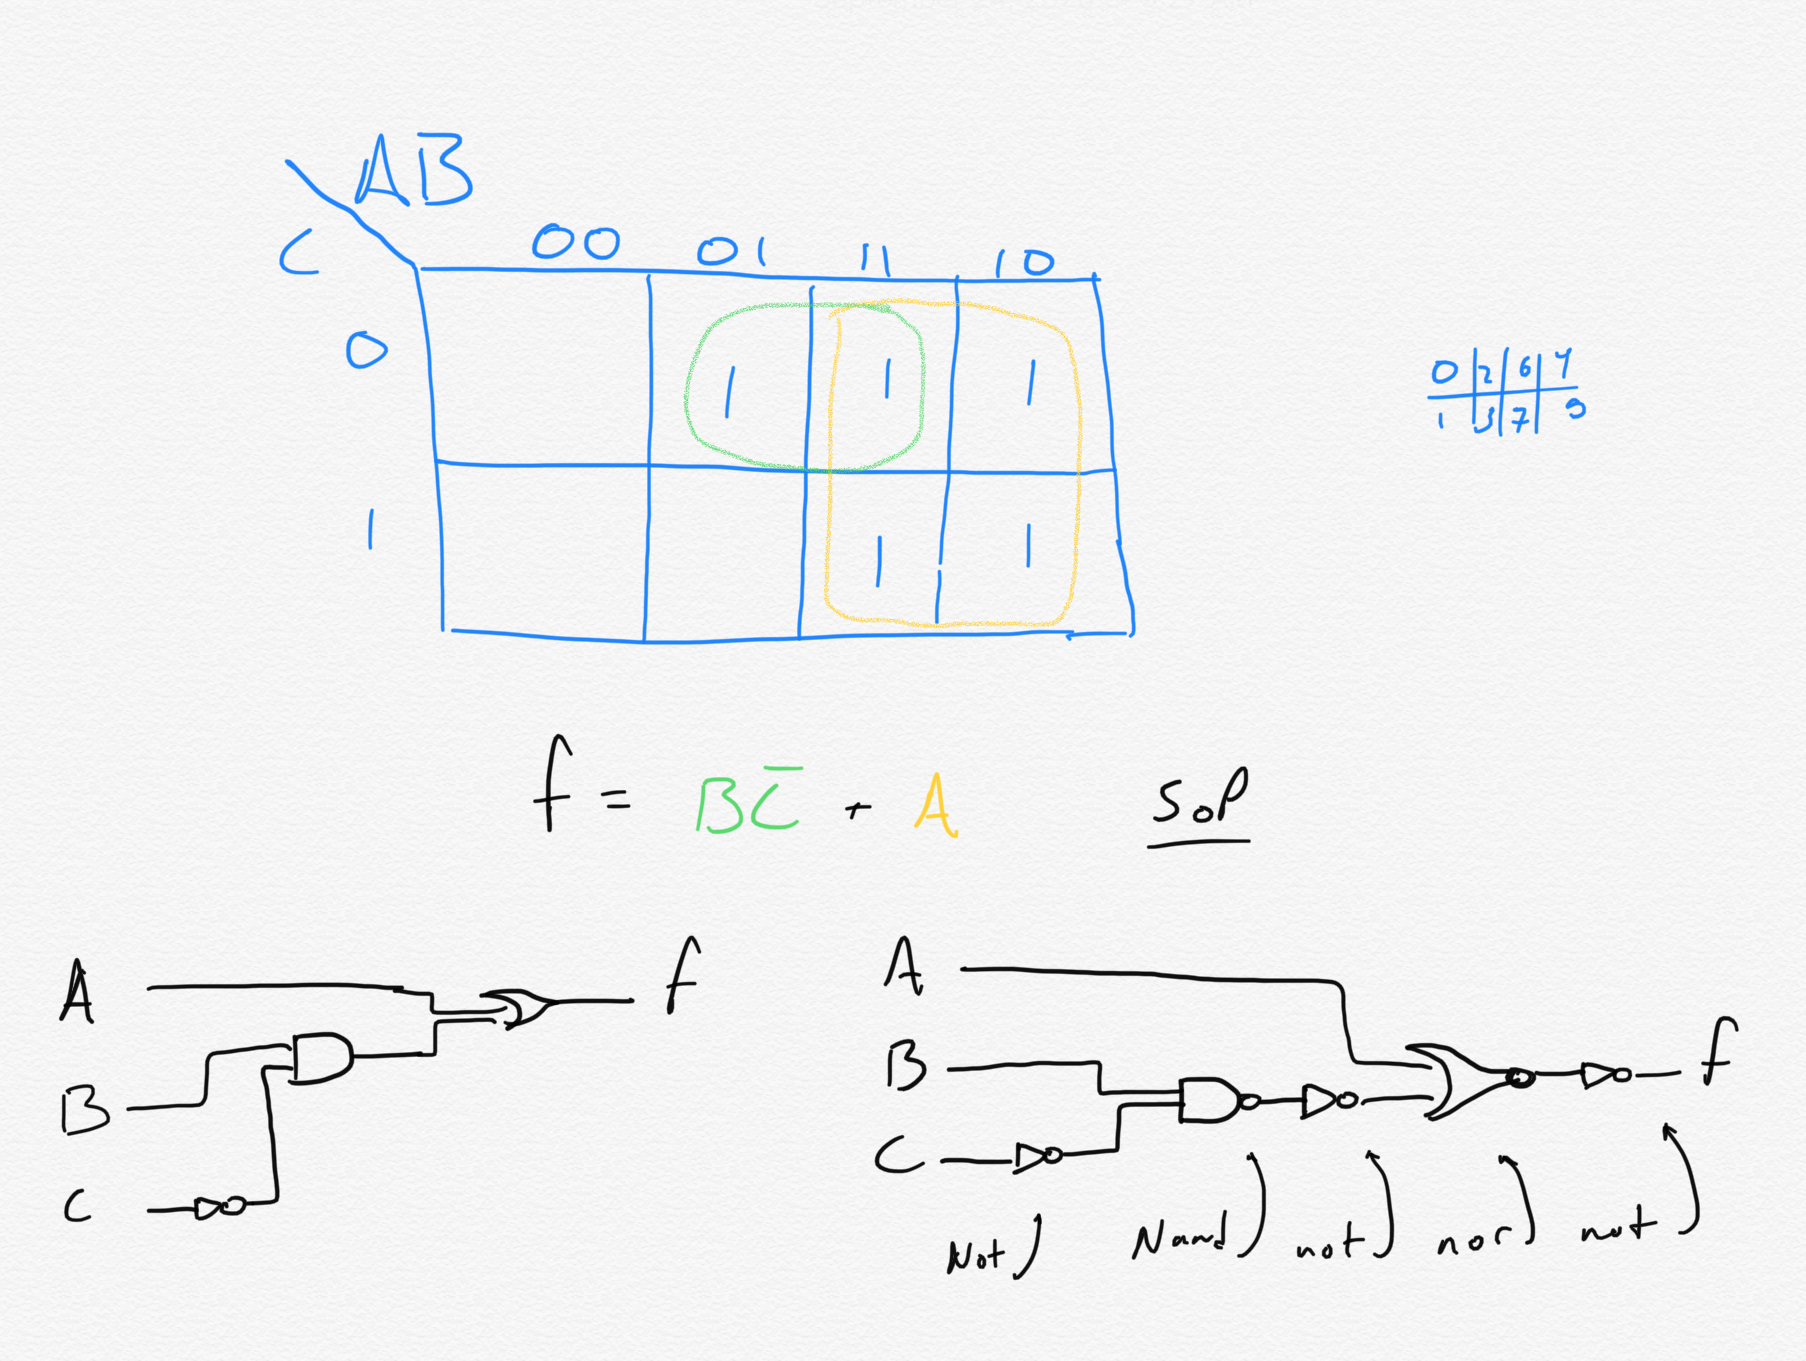 AB
C 00 01 11 10
0 1 1 1
1 1 1
0 2 6 4
1 3 7 5
f = BC̅ + A SOP
A f
B
C
A
B f
C
Not Nand not nor not